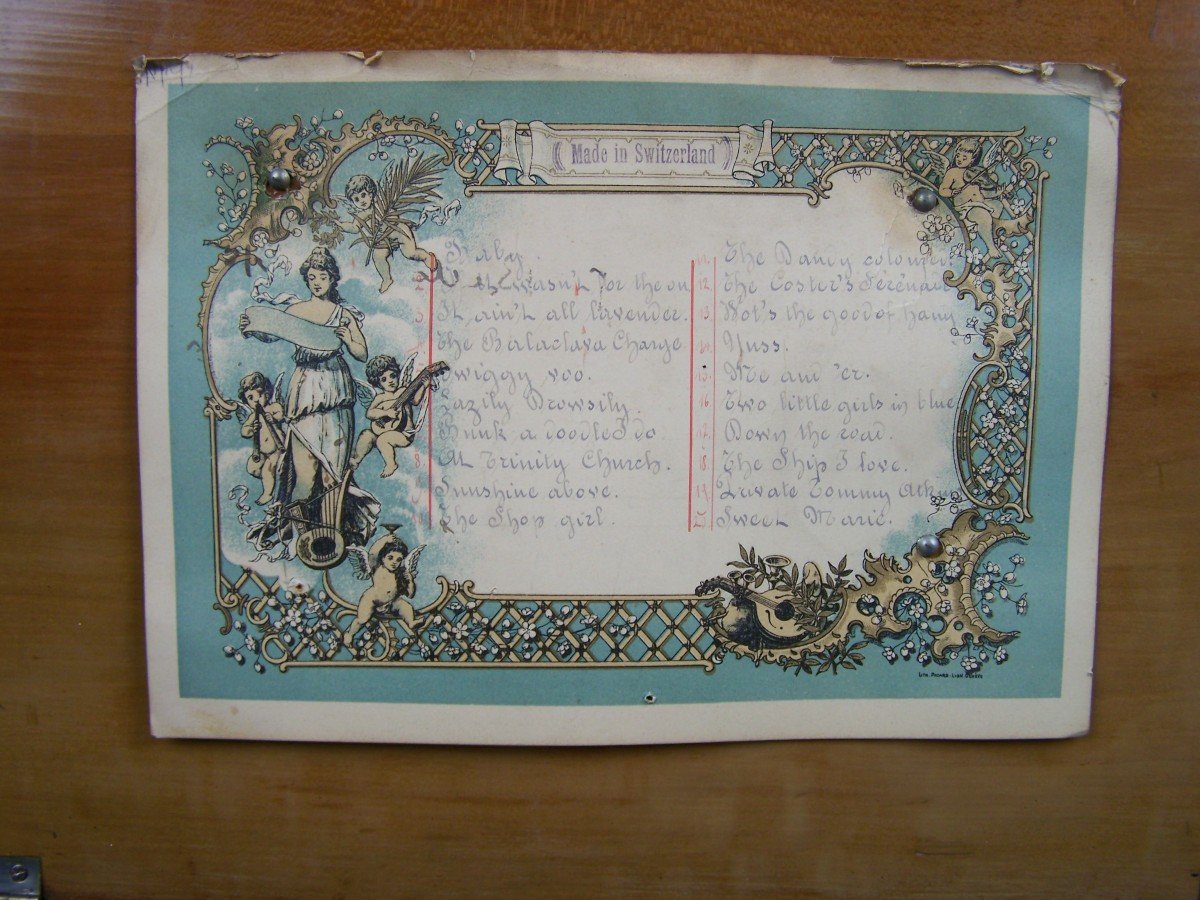 Made in Switzerland
wasn't for the
3 It ain't all lavender.
The Balaclava Charge
Twiggy voo.
Lazily Drowsily.
a doodle do
8 At Trinity Church.
Sunshine above.
The Shop girl.
11. The Dandy coloured
12. The Coster's Serenade
13. Wot's the good of hany
14. Yuss.
15. Me and 'er.
16. Two little girls in blue
17. Down the road.
18. The Ship I love.
19. Private Tommy Atkin
20 Sweet Marie.
LITH. PICARD-LION GENEVE